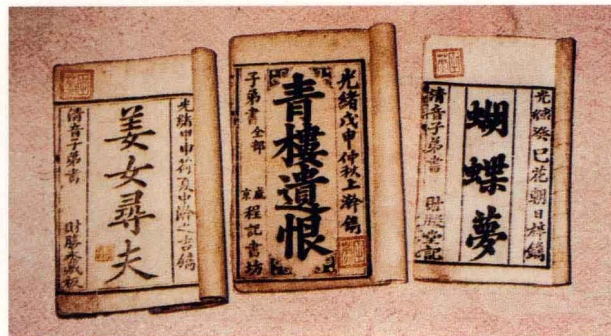 光緒甲申荷夏中澣之吉鐫
姜女尋夫
清音子弟書
光緒戊申仲秋上澣鐫
青樓遺恨
子弟書 全部
盛京 程記書坊
光緒癸巳花朝日梓鐫
蝴蝶夢
清音子弟書